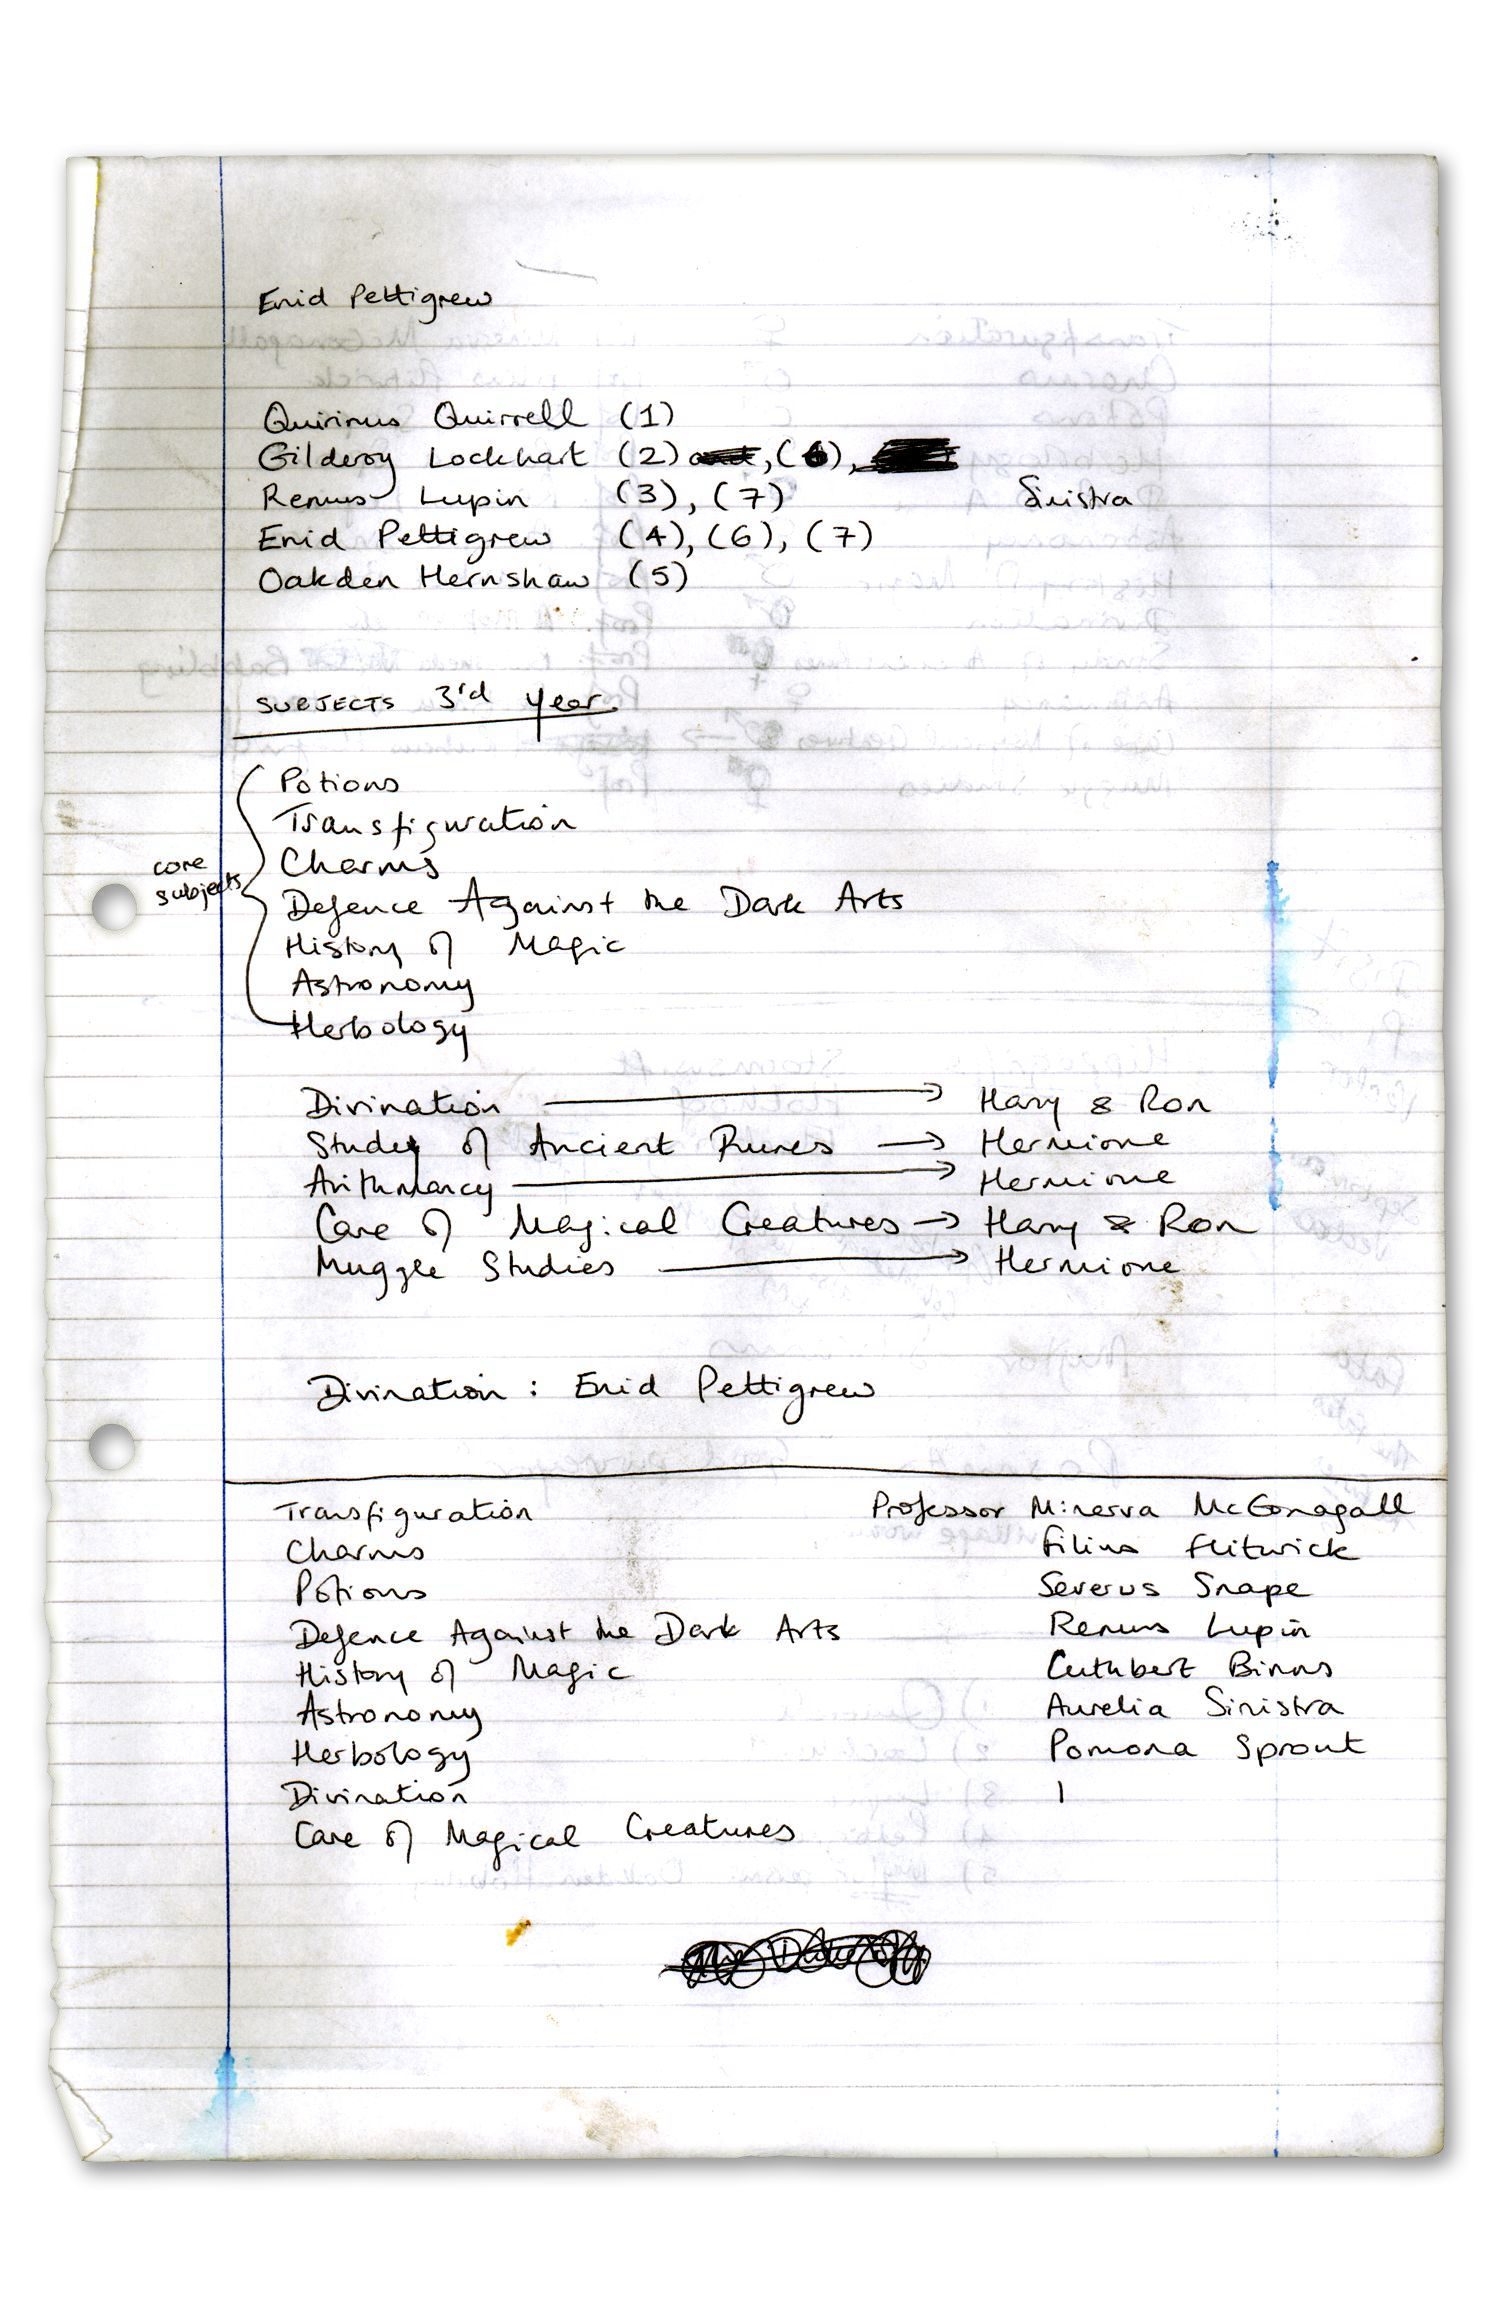 Enid Pettigrew
Quirinus Quirrell (1)
Gilderoy Lockhart (2) and, (6),
Remus Lupin (3), (7) Sinistra
Enid Pettigrew (4), (6), (7)
Oakden Hernshaw (5)
SUBJECTS 3rd Year.
Potions
Transfiguration
core subjects
Charms
Defence Against the Dark Arts
History of Magic
Astronomy
Herbology
Divination → Harry & Ron
Study of Ancient Runes → Hermione
Arithmancy → Hermione
Care of Magical Creatures → Harry & Ron
Muggle Studies → Hermione
Divination : Enid Pettigrew
Transfiguration Professor Minerva McGonagall
Charms Filius Flitwick
Potions Severus Snape
Defence Against the Dark Arts Remus Lupin
History of Magic Cuthbert Binns
Astronomy Aurelia Sinistra
Herbology Pomona Sprout
Divination |
Care of Magical Creatures